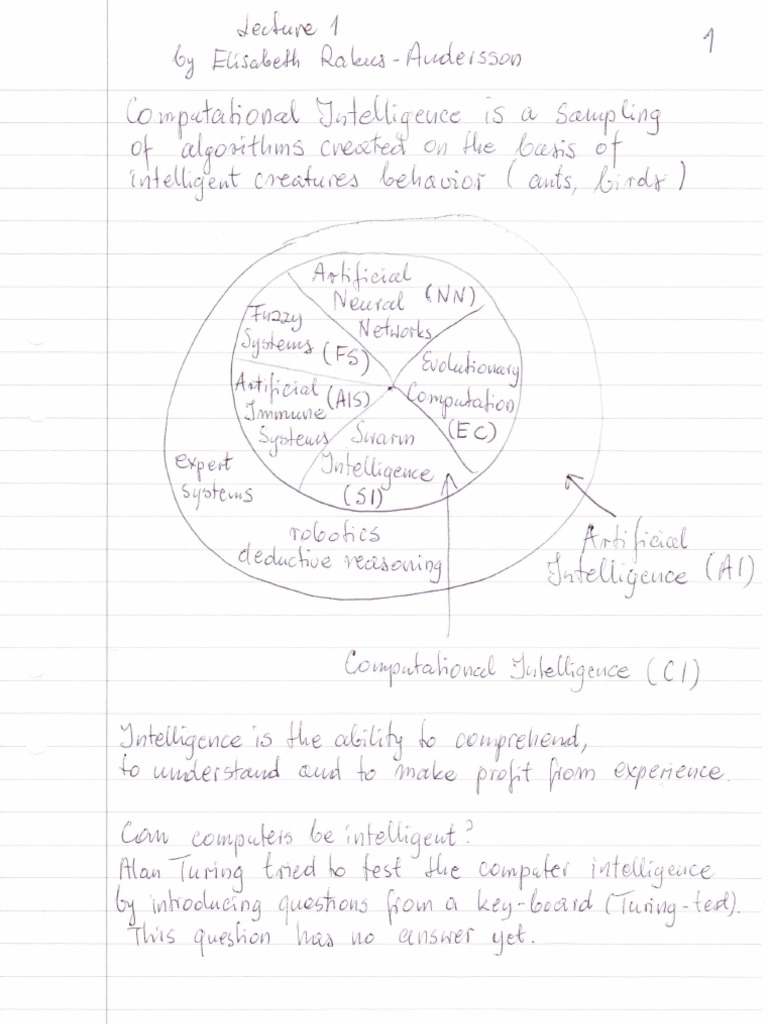 Lecture 1
1
by Elisabeth Rakus-Andersson
Computational Intelligence is a sampling
of algorithms created on the basis of
intelligent creatures behavior (ants, birds)
Artificial
Neural (NN)
Networks
Fuzzy
Systems (FS)
Evolutionary
Computation
(EC)
Artificial (AIS)
Immune
Systems
Swarm
Intelligence
(SI)
expert
systems
robotics
deductive reasoning
Artificial
Intelligence (AI)
Computational Intelligence (CI)
Intelligence is the ability to comprehend,
to understand and to make profit from experience.
Can computers be intelligent?
Alan Turing tried to test the computer intelligence
by introducing questions from a key-board (Turing-test).
This question has no answer yet.